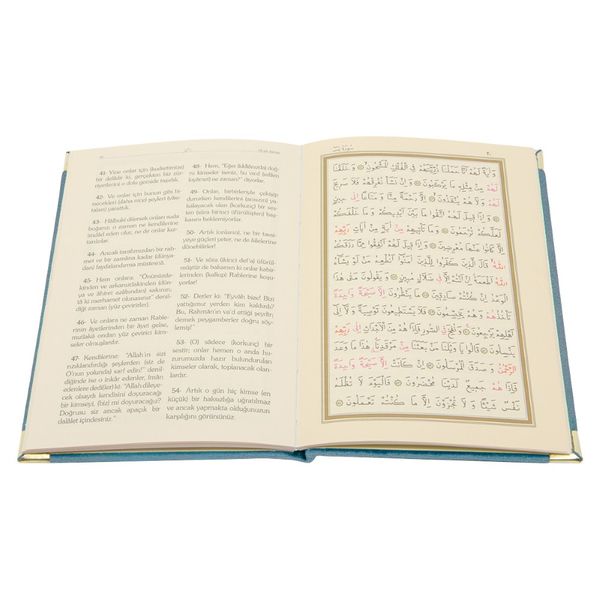 41- Yine onlar için (kudretimize)
bir delildir ki, gerçekten biz dürri-
yetlerini o dolu gemide taşıdık.
42- Ve onlar için bunun gibi bi-
necekleri (daha nice) şeyleri (vâsı-
taları) yarattık.
43- Hâlbuki dilemek onları suda
boğarız; o zaman ne kendilerine
imdâd eden olur, ne de onlar kur-
tarılırlar.
44- Ancak tarafımızdan bir rah-
met ve bir zamâna kadar (dünyâ-
dan) faydalandırma müstesnâ.
45- Hem onlara: "Önünüzde-
kinden ve arkanızdakinden (dün-
ya ve âhiret azâbından) sakının;
tâ ki merhamet olunasınız" denil-
diği zaman (yüz çevirirler).
46- Ve onlara ne zaman Rable-
rinin âyetlerinden bir âyet gelse,
mutlakā ondan yüz çevirici kim-
seler olmuşlardır.
47- Kendilerine: "Allah'ın sizi
rızıklandırdığı şeylerden (siz de
O'nun yolunda) sarf edin!" denildi-
ğinde ise o inkâr edenler, îmân
edenlere dediler ki: "Allah dileye-
cek olsaydı kendisini doyuracağı
bir kimseyi, (biz) mi doyuracağız?
Doğrusu siz ancak apaçık bir
dalâlet içindesiniz."
48- Hem, "Eğer (iddiânızda) doğ-
ru kimseler iseniz, bu vaad (edilen
kıyâmet) ne zaman?" diyorlar.
49- Onlar, birbirleriyle çekişip
dururlarken (kendilerini) ansızın ya-
kalayacak olan (korkunç) bir ses-
ten (sûra birinci üfürülüşten) baş-
kasını beklemiyorlar.
50- Artık (onlar) ne bir tavsi-
yeye güçleri yeter, ne de âilelerine
dönebilirler!
51- Ve sûra (ikinci def'a) üfürül-
müştür de bakarsın ki onlar kabir-
lerinden (kalkıp) Rablerine koşu-
yorlar!
52- Derler ki: "Eyvâh bize! Bizi
yattığımız yerden kim kaldırdı?
Bu, Rahmân'ın va'd ettiği şeydir;
demek peygamberler doğru söyle-
miş!"
53- (O) sâdece (korkunç) bir
sestir; onlar hemen o anda hu-
zûrumuzda hazır bulundurulan
kimseler olarak, toplanacak olan-
lardır.
54- Artık o gün hiç kimse (en
küçük) bir haksızlığa uğratılmaz
ve ancak yapmakta olduğunuzun
karşılığını görürsünüz.
وَاٰيَةٌ لَهُمْ اَنَّا حَمَلْنَا ذُرِّيَّتَهُمْ فِي الْفُلْكِ الْمَشْحُونِ وَخَلَقْنَا
لَهُمْ مِنْ مِثْلِهِ مَا يَرْكَبُونَ وَاِنْ نَشَأْ نُغْرِقْهُمْ فَلَا صَرِيخَ
لَهُمْ وَلَا هُمْ يُنْقَذُونَ اِلَّا رَحْمَةً مِنَّا وَمَتَاعًا اِلٰى حِينٍ
وَاِذَا قِيلَ لَهُمُ اتَّقُوا مَا بَيْنَ اَيْدِيكُمْ وَمَا خَلْفَكُمْ
لَعَلَّكُمْ تُرْحَمُونَ وَمَا تَأْتِيهِمْ مِنْ اٰيَةٍ مِنْ اٰيَاتِ رَبِّهِمْ
اِلَّا كَانُوا عَنْهَا مُعْرِضِينَ وَاِذَا قِيلَ لَهُمْ اَنْفِقُوا مِمَّا رَزَقَكُمُ
اللّٰهُ قَالَ الَّذِينَ كَفَرُوا لِلَّذِينَ اٰمَنُوا اَنُطْعِمُ مَنْ لَوْ يَشَاءُ
اللّٰهُ اَطْعَمَهُ اِنْ اَنْتُمْ اِلَّا فِي ضَلَالٍ مُبِينٍ وَيَقُولُونَ مَتٰى هٰذَا
الْوَعْدُ اِنْ كُنْتُمْ صَادِقِينَ مَا يَنْظُرُونَ اِلَّا صَيْحَةً وَاحِدَةً
تَأْخُذُهُمْ وَهُمْ يَخِصِّمُونَ فَلَا يَسْتَطِيعُونَ تَوْصِيَةً وَلَا اِلٰى
اَهْلِهِمْ يَرْجِعُونَ وَنُفِخَ فِي الصُّورِ فَاِذَا هُمْ مِنَ الْاَجْدَاثِ اِلٰى رَبِّهِمْ
يَنْسِلُونَ قَالُوا يَا وَيْلَنَا مَنْ بَعَثَنَا مِنْ مَرْقَدِنَا هٰذَا مَا وَعَدَ
الرَّحْمٰنُ وَصَدَقَ الْمُرْسَلُونَ اِنْ كَانَتْ اِلَّا صَيْحَةً وَاحِدَةً
فَاِذَا هُمْ جَمِيعٌ لَدَيْنَا مُحْضَرُونَ فَالْيَوْمَ لَا تُظْلَمُ
نَفْسٌ شَيْئًا وَلَا تُجْزَوْنَ اِلَّا مَا كُنْتُمْ تَعْمَلُونَ